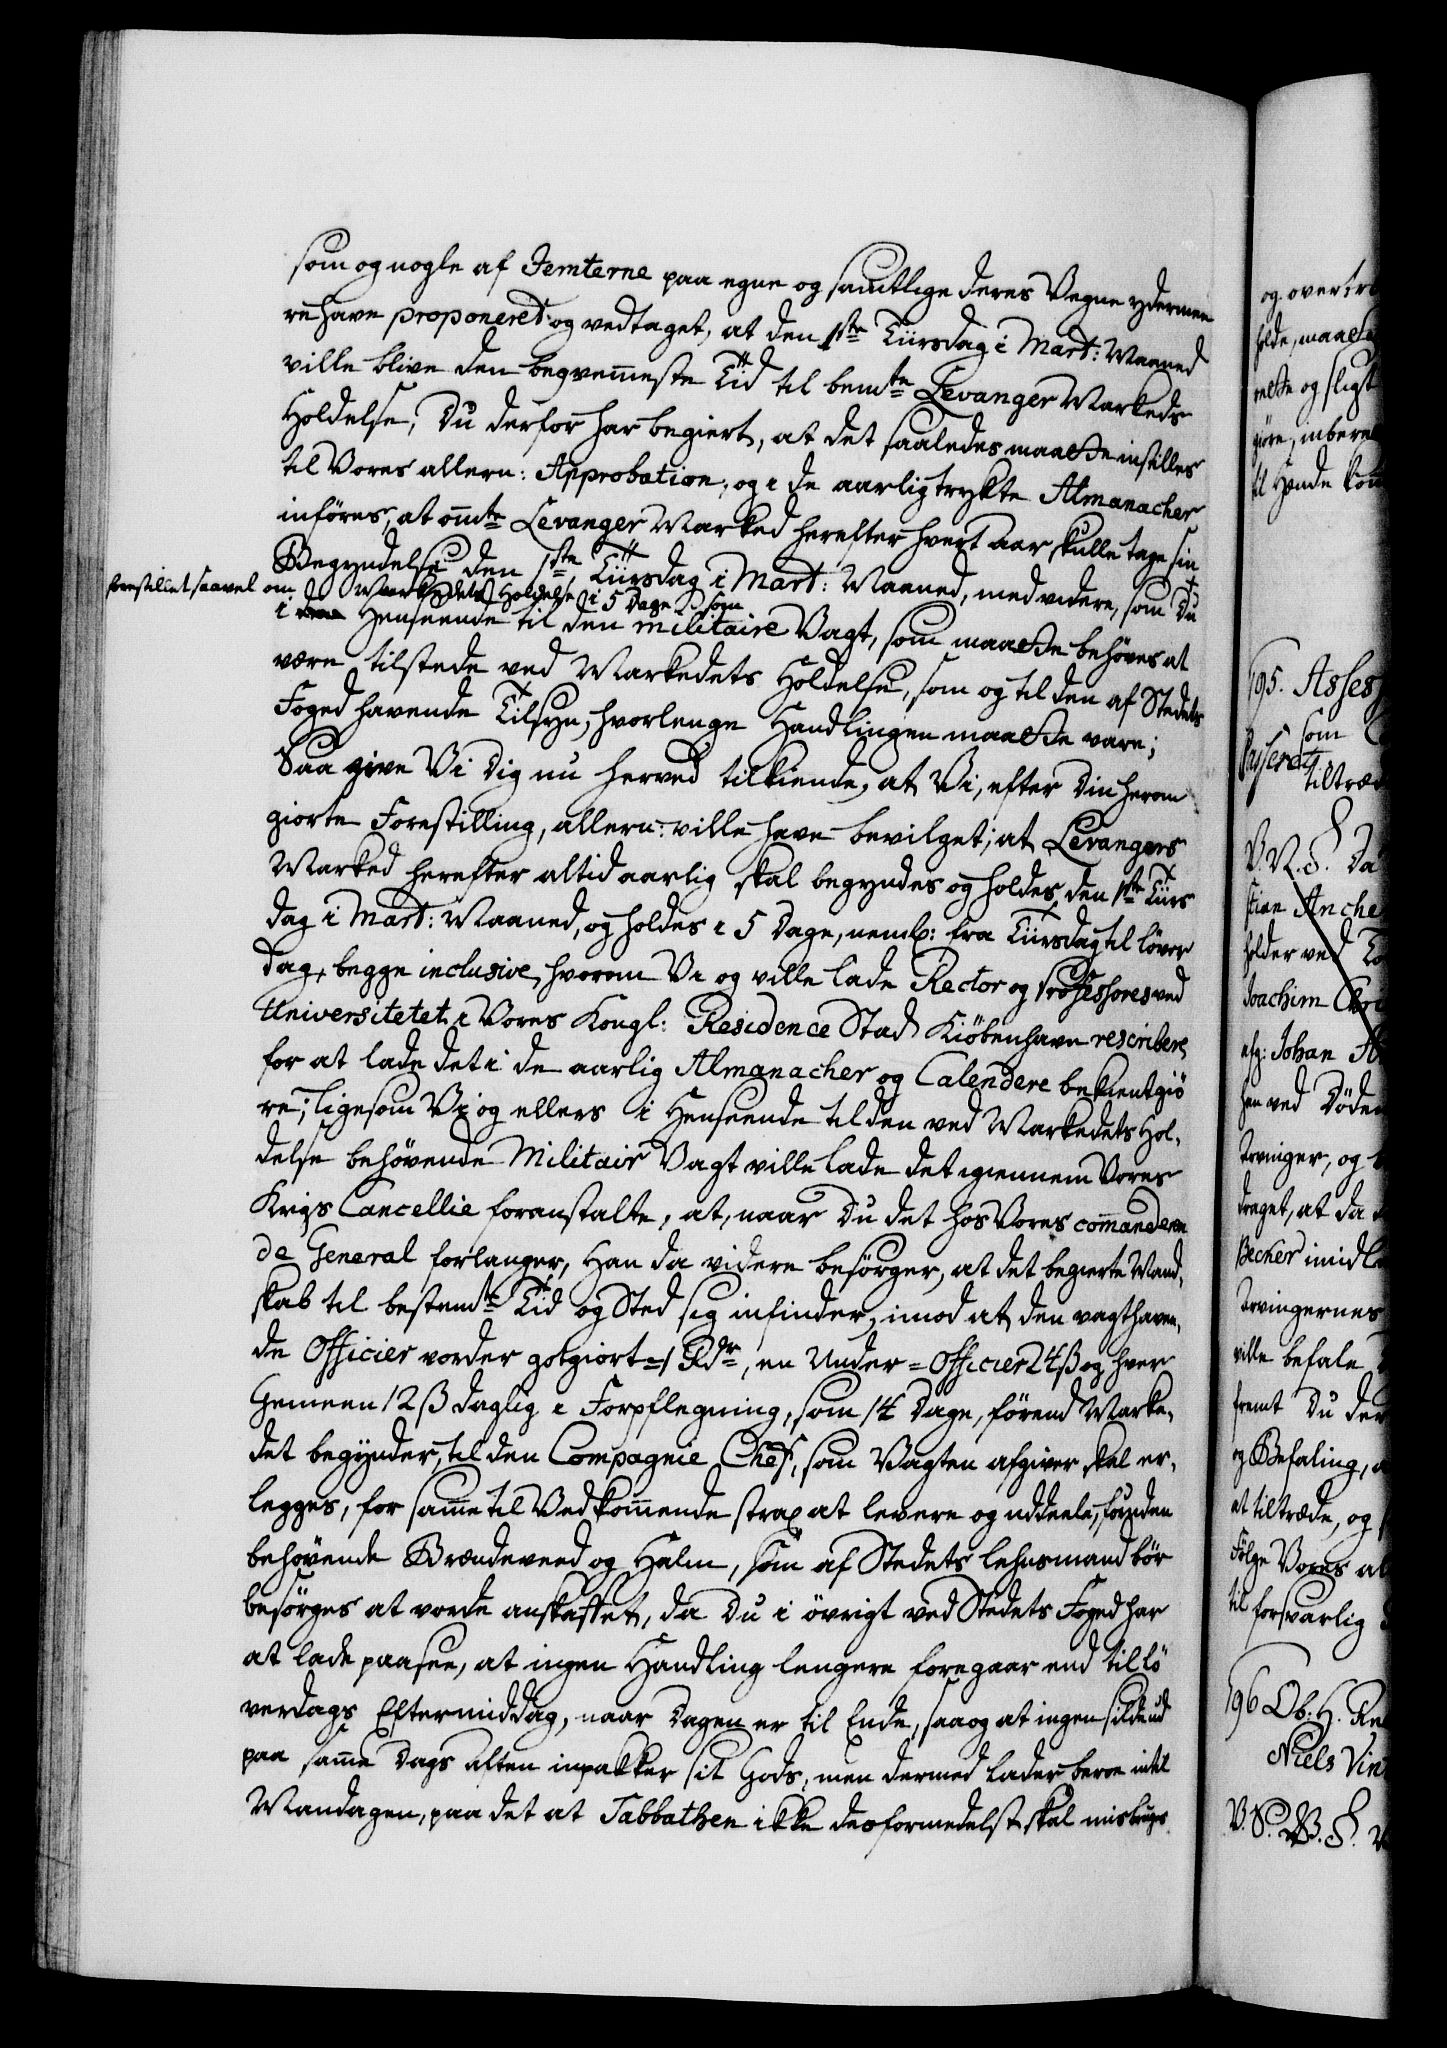 som og nogle af Jemterne paa egne og samtlige deres Vegne ydermee
re have proponeret og vedtaget, at den 1ste Tiirsdag i Mart: Maaned
ville blive den beqvemmeste Tid til bemte Levanger Markeds
Holdelse, Du derfor har begiert, at det saaledes maatte instilles
til Vores allern: Approbation, og i de aarlig trykte Almanacher
införes, at omte Levanger Marked herefter hvert Aar skulle tage sin
Begyndelse den 1ste Tiirsdag i Mart: Maaned, med videre, som Du
forestillet saavel om Markedets Holdelse i 5 Dage, som
i Henseende til den militaire Vagt, som maatte behöves at
være tilstede ved Markedets Holdelse, som og til den af Stedets
Foged havende Tilsyn, hvorlenge Handlingen maatte vare;
Saa give Vi Dig nu herved tilkiende, at Vi, efter Din herom
giorte Forestilling, allern: ville have bevilget, at Levangers
Marked herefter altid aarlig skal begyndes og holdes den 1ste Tiirs
dag i Mart: Maaned, og holdes i 5 Dage, neml: fra Tiirsdag til löver
dag, begge inclusive, hvorom Vi og ville lade Rector og Professores ved
Universitetet i Vores Kongl: Residence Stad Kiöbenhavn rescribere,
for at lade det i de aarlig Almanacher og Calendere bekientgiö
re; ligesom Vi og ellers i Henseende til den ved Markedets Hol-
delse behövende Militair Vagt ville lade det igiennem Vores
Krigs Cancellie foranstalte, at, naar Du det hos Vores commanderen
de General forlanger, Han da videre besörger, at det begierte Mand-
skab til bestemte Tid og Sted sig infinder, imod at den vagthaven-
de Officier vorder gotgiort 1 Rdr, en Under-Officier 24 ß og hver
Gemeen 12 ß daglig i Forpflegning, som 14 Dage, förend Marke-
det begynder, til den Compagnie Chef, som Vagten afgiver skal er-
legges, for samme til Vedkommende strax at levere og uddeele, foruden
behövende Brændeveed og Halm, som af Stedets lehnsmand bör
besörges at vorde anskaffet, da Du i övrigt ved Stedets Foged har
at lade paasee, at ingen Handling lengere foregaar end til lö
verdags Eftermiddag, naar Dagen er til Ende, saa og at ingen silde ud
paa samme Dags Aften inpakker sit Gods, men dermed lader beroe intil
Mandagen, paa det at Sabbathen ikke derformedelst skal misbruges.
og overtr
holde, maatte
relde og sligt
giöre, inbere
til Hende kom
195. Assess
som
tiltræd
V. N. S. Da
stian Anche
holder ved To
Joachim Chri
afg: Johan
hen ved Döden
Tvinger, og
draget, at da
Becher imidle
Tvingernes
ville befale
fremt Du der
og Befaling, a
at tiltræde, og
Fölge Vores al
til forsvarlig
196 Ob: H.
Niels Vin